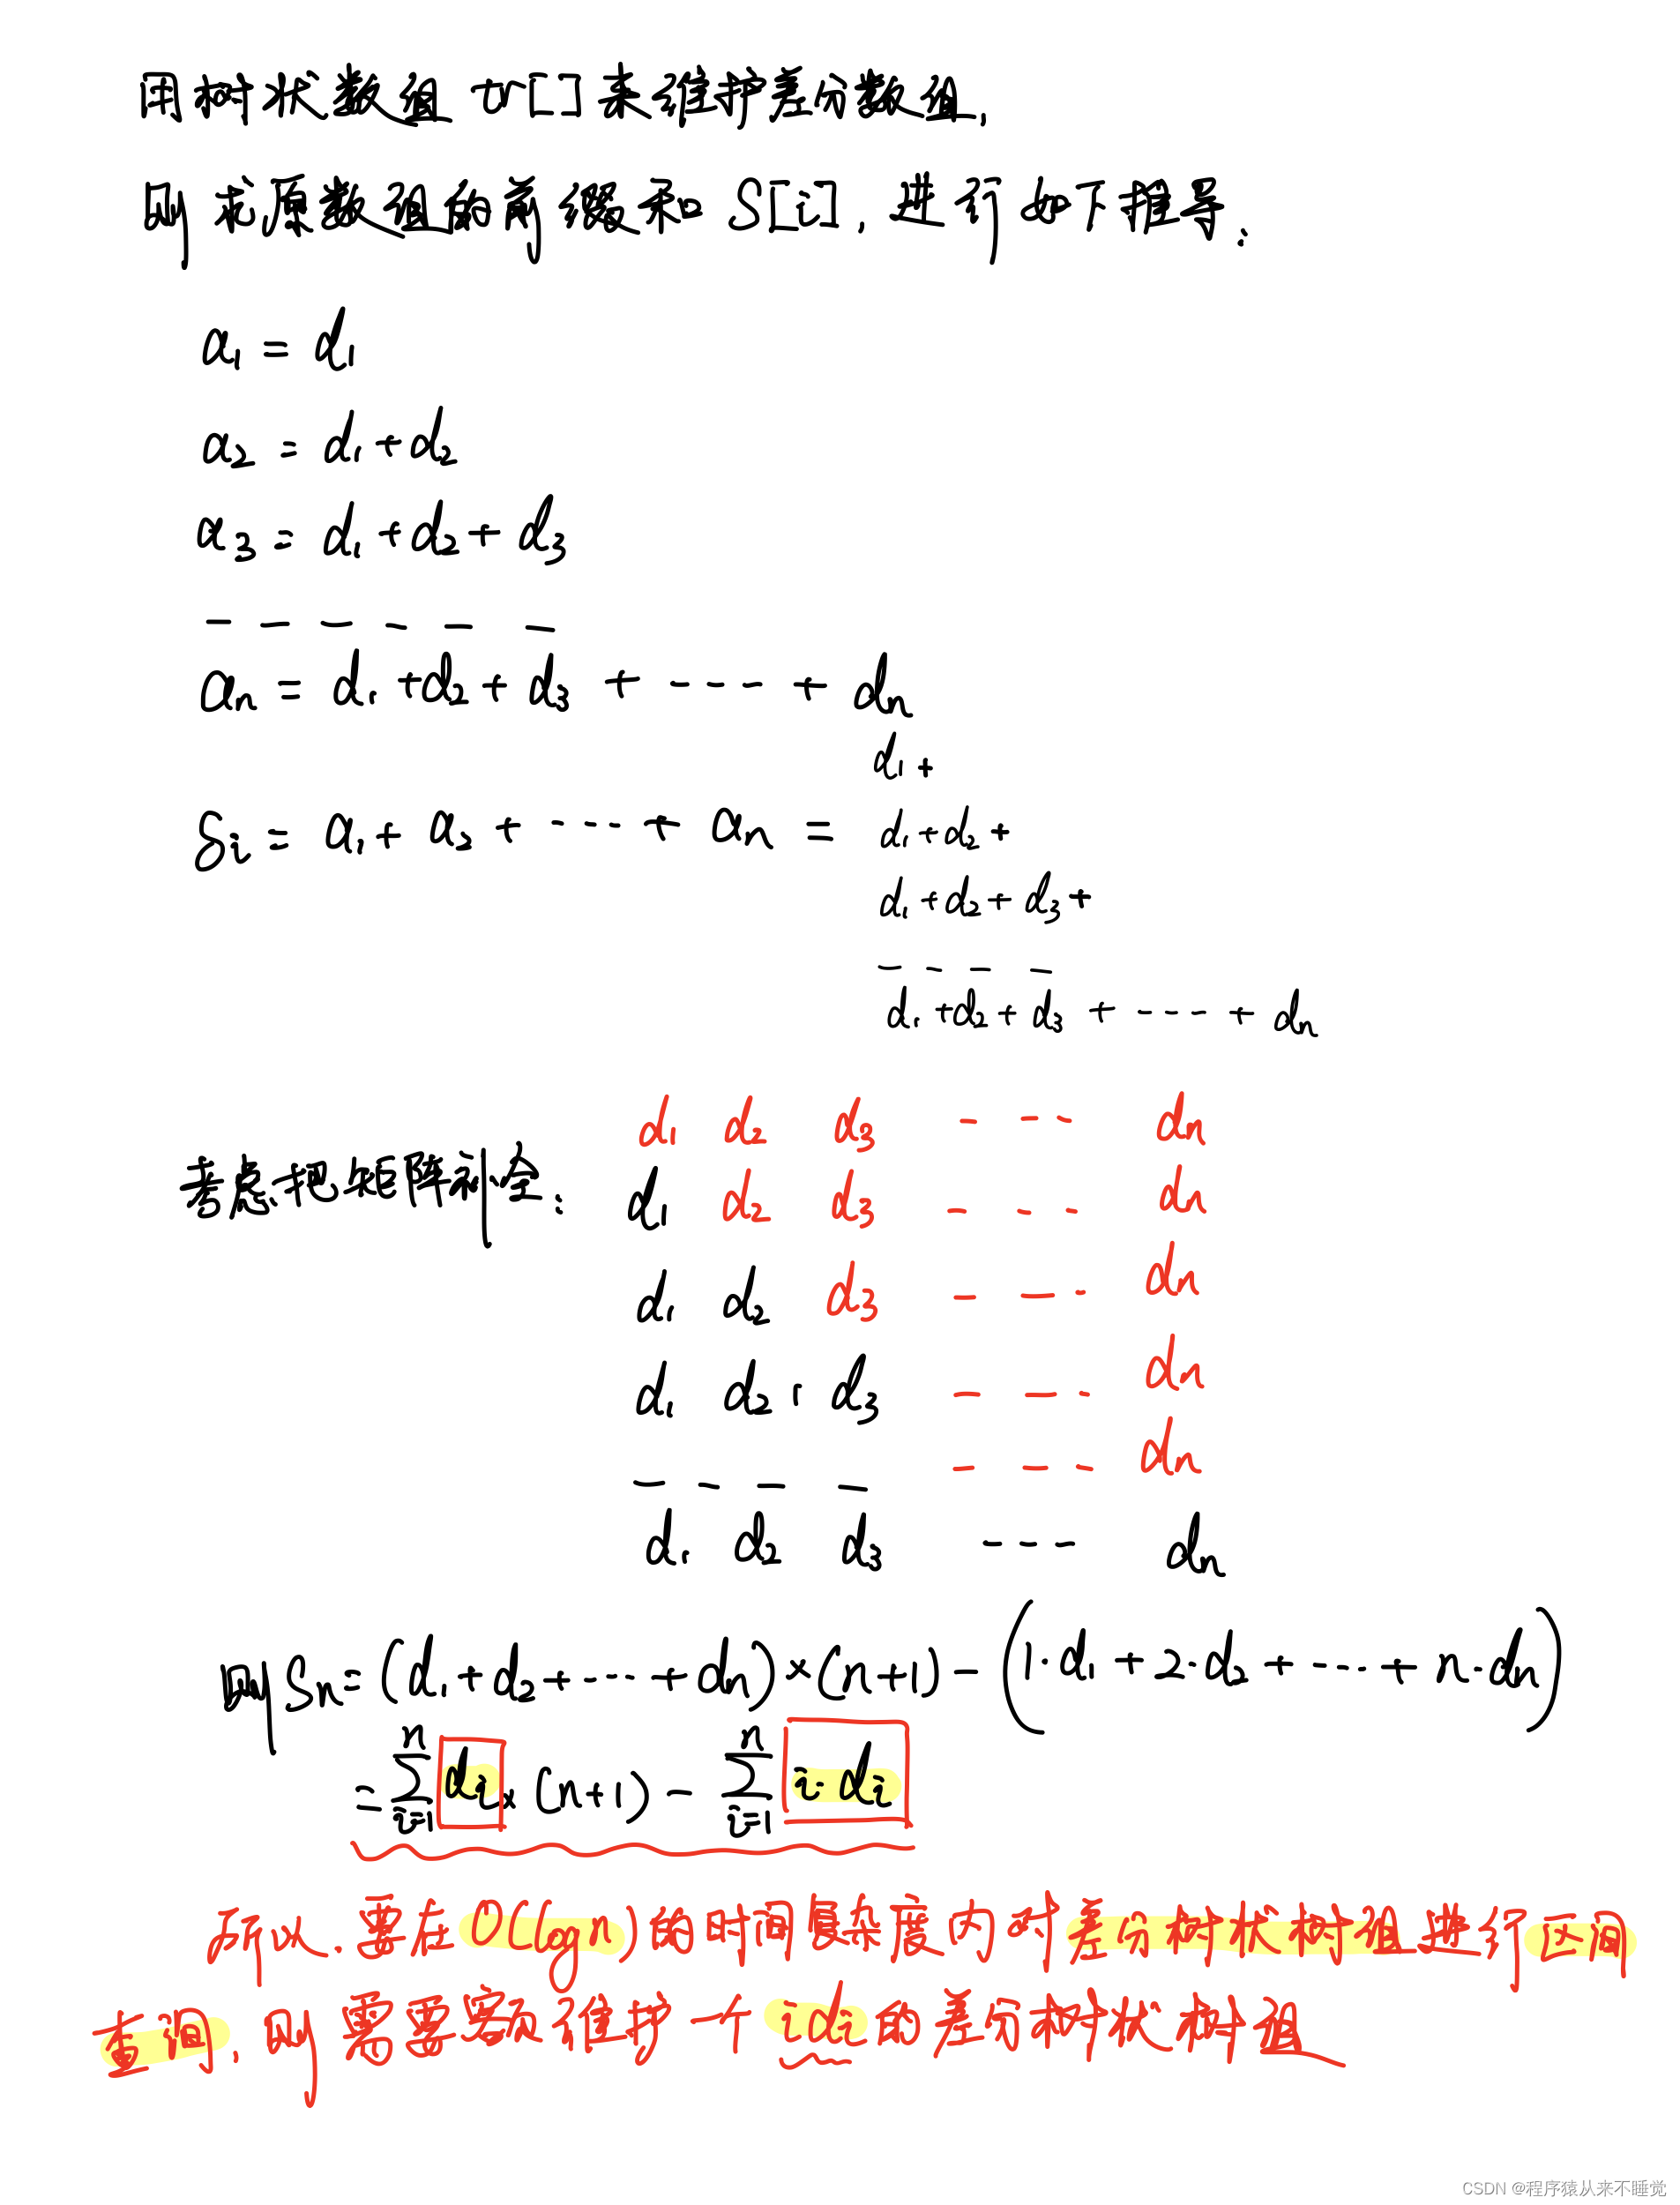 用树状数组 tr[] 来维护差分数组,
则求原数组的前缀和 S[i], 进行如下推导:
a1 = d1
a2 = d1+d2
a3 = d1+d2+d3
- - - - - -
an = d1+d2+d3 + ---- + dn
Si = a1+ a2 + ---- + an =
d1 +
d1+d2 +
d1+d2+d3 +
- - - -
d1+d2+d3 + ---- + dn
考虑把矩阵补全:
d1 d2 d3 - -- dn
d1 d2 d3 - - - dn
d1 d2 d3 - - - dn
d1 d2 d3 - - - dn
- - - - - - - dn
d1 d2 d3 --- dn
则 Sn= (d1+d2+----+dn)×(n+1) - (1·d1 + 2·d2 + ---- + n·dn)
= ∑_{i=1}^{n} di × (n+1) - ∑_{i=1}^{n} i·di
所以. 要在 O(log n) 的时间复杂度内对差分树状树组进行区间
查询, 则需要额维护一个 idi 的差分树状树组
CSDN @程序猿从来不睡觉